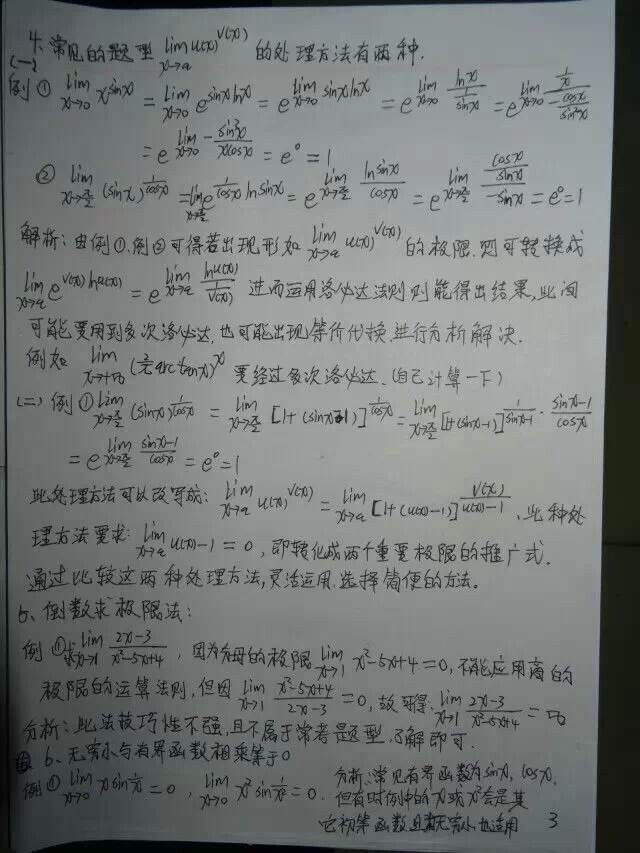 4. 常见的题型 lim_{x→a} u(x)^{v(x)} 的处理方法有两种.
(一)
例① lim_{x→0} x^{sinx} = lim_{x→0} e^{sinxlnx} = e^{lim_{x→0} sinxlnx} = e^{lim_{x→0} lnx/(1/sinx)} = e^{lim_{x→0} (1/x)/(-cosx/sin²x)}
= e^{lim_{x→0} -sin²x/(xcosx)} = e⁰ = 1
② lim_{x→π/2} (sinx)^{1/cosx} = lim_{x→π/2} e^{(1/cosx) lnsinx} = e^{lim_{x→π/2} lnsinx/cosx} = e^{lim_{x→π/2} (cosx/sinx)/(-sinx)} = e⁰ = 1
解析: 由例①.例②可得若出现形如 lim_{x→a} u(x)^{v(x)} 的极限.则可转换成
lim_{x→a} e^{v(x)lnu(x)} = e^{lim_{x→a} lnu(x)/(1/v(x))} 进而运用洛必达法则则能得出结果,此间
可能要用到多次洛必达,也可能出现等价代换.进行分析解决.
例如 lim_{x→+∞} (2/π arctanx)^x 要经过多次洛必达.(自己计算一下)
(二) 例① lim_{x→π/2} (sinx)^{1/cosx} = lim_{x→π/2} [1+(sinx-1)]^{1/cosx} = lim_{x→π/2} [1+(sinx-1)]^{1/(sinx-1) · (sinx-1)/cosx}
= e^{lim_{x→π/2} (sinx-1)/cosx} = e⁰ = 1
此处理方法可以改写成: lim_{x→a} u(x)^{v(x)} = lim_{x→a} [1+(u(x)-1)]^{v(x)/(u(x)-1)}.此种处
理方法要求: lim_{x→a} u(x)-1 = 0, 即转化成两个重要极限的推广式.
通过比较这两种处理方法,灵活运用.选择简便的方法。
5、倒数求极限法:
例①求 lim_{x→1} (2x-3)/(x²-5x+4), 因为分母的极限 lim_{x→1} x²-5x+4 = 0, 不能应用商的
极限的运算法则, 但因 lim_{x→1} (x²-5x+4)/(2x-3) = 0, 故可得: lim_{x→1} (2x-3)/(x²-5x+4) = ∞
分析: 此法技巧性不强,且不属于常考题型.了解即可.
6、无穷小与有界函数相乘等于0
例① lim_{x→0} x sin(1/x) = 0, lim_{x→0} x² sin(1/x²) = 0.
分析:常见有界函数为sinx, cosx,
但有时例中的x或x²会是其
它初等函数且无穷小也适用
3